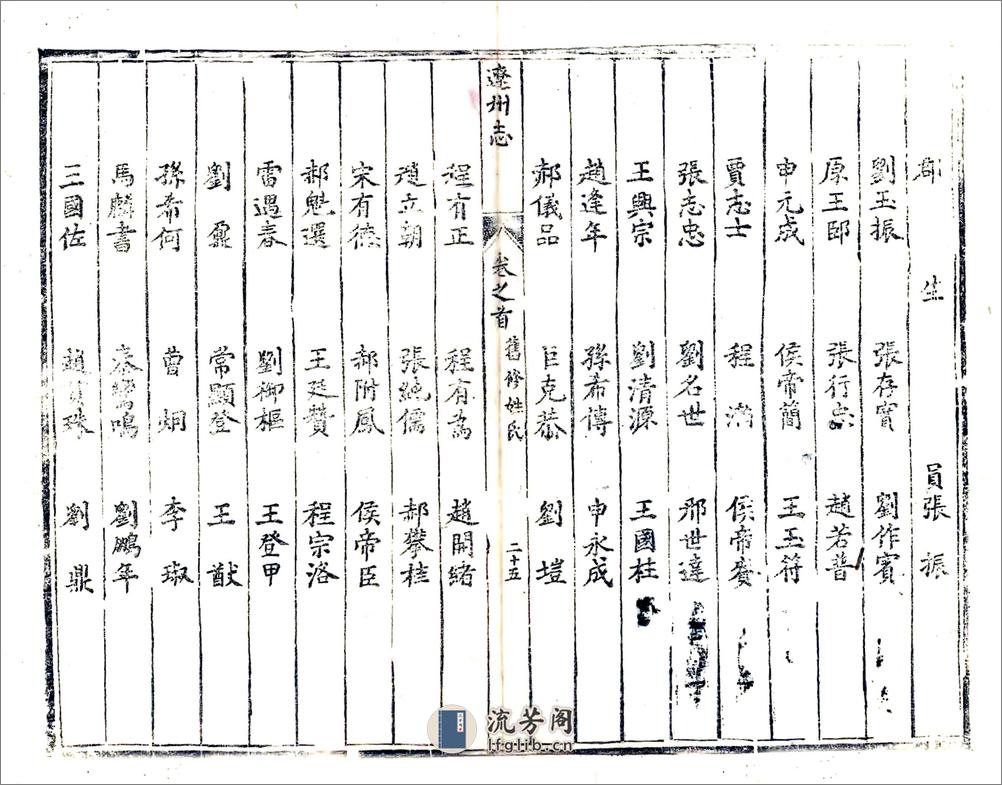 郡 生 員張 振
劉玉振 張存實 劉作賓
原王邸 張行 趙若普
申元成 侯帝簡 王玉符
賈志士 程 侯帝賚
張志忠 劉名世 邢世達
王興宗 劉清源 王國柱
趙逢年 孫希傳 申永成
郝儀品 巨克恭 劉 塏
遼州志 卷之首 舊修姓氏 二十五
程有正 程有為 趙開緒
趙立朝 張純儒 郝攀桂
宋有德 郝附鳳 侯帝臣
郝魁選 王廷贊 程宗洛
雷遇春 劉御樞 王登甲
劉 鼐 常顯登 王 猷
孫希何 曹 炯 李 琡
馬麟書 秦鸞鳴 劉鵬年
三國佐 趙 珠 劉 鼎
流芳阁
lfglib.cn